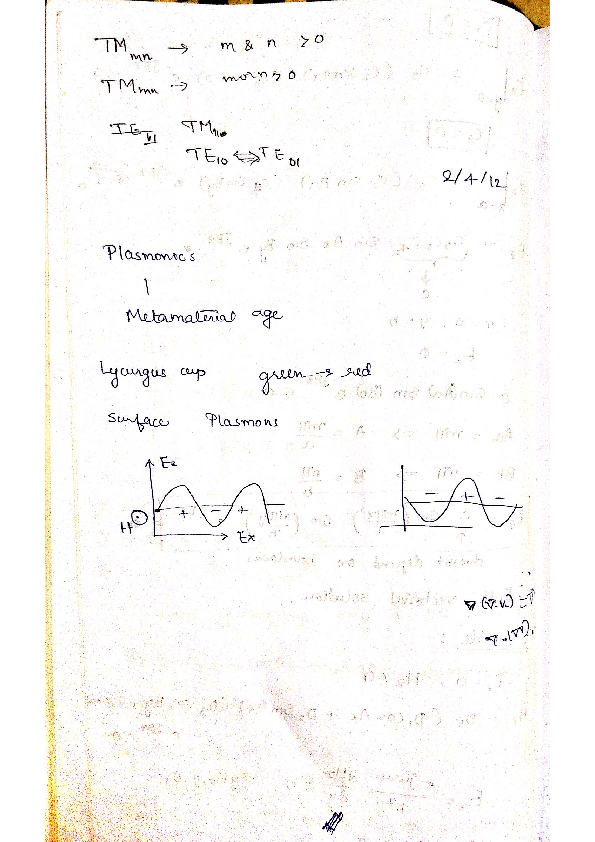 TM mn → m & n > 0
TM mn → m or n > 0
TE TM
TE10 ⟺ TE01
2/4/12
Plasmonics
|
Metamaterial age
Lycurgus cup green → red
Surface Plasmons
Ez
+ - +
H Ex
- + -
∇(∇.V) =
∇.(∇V).